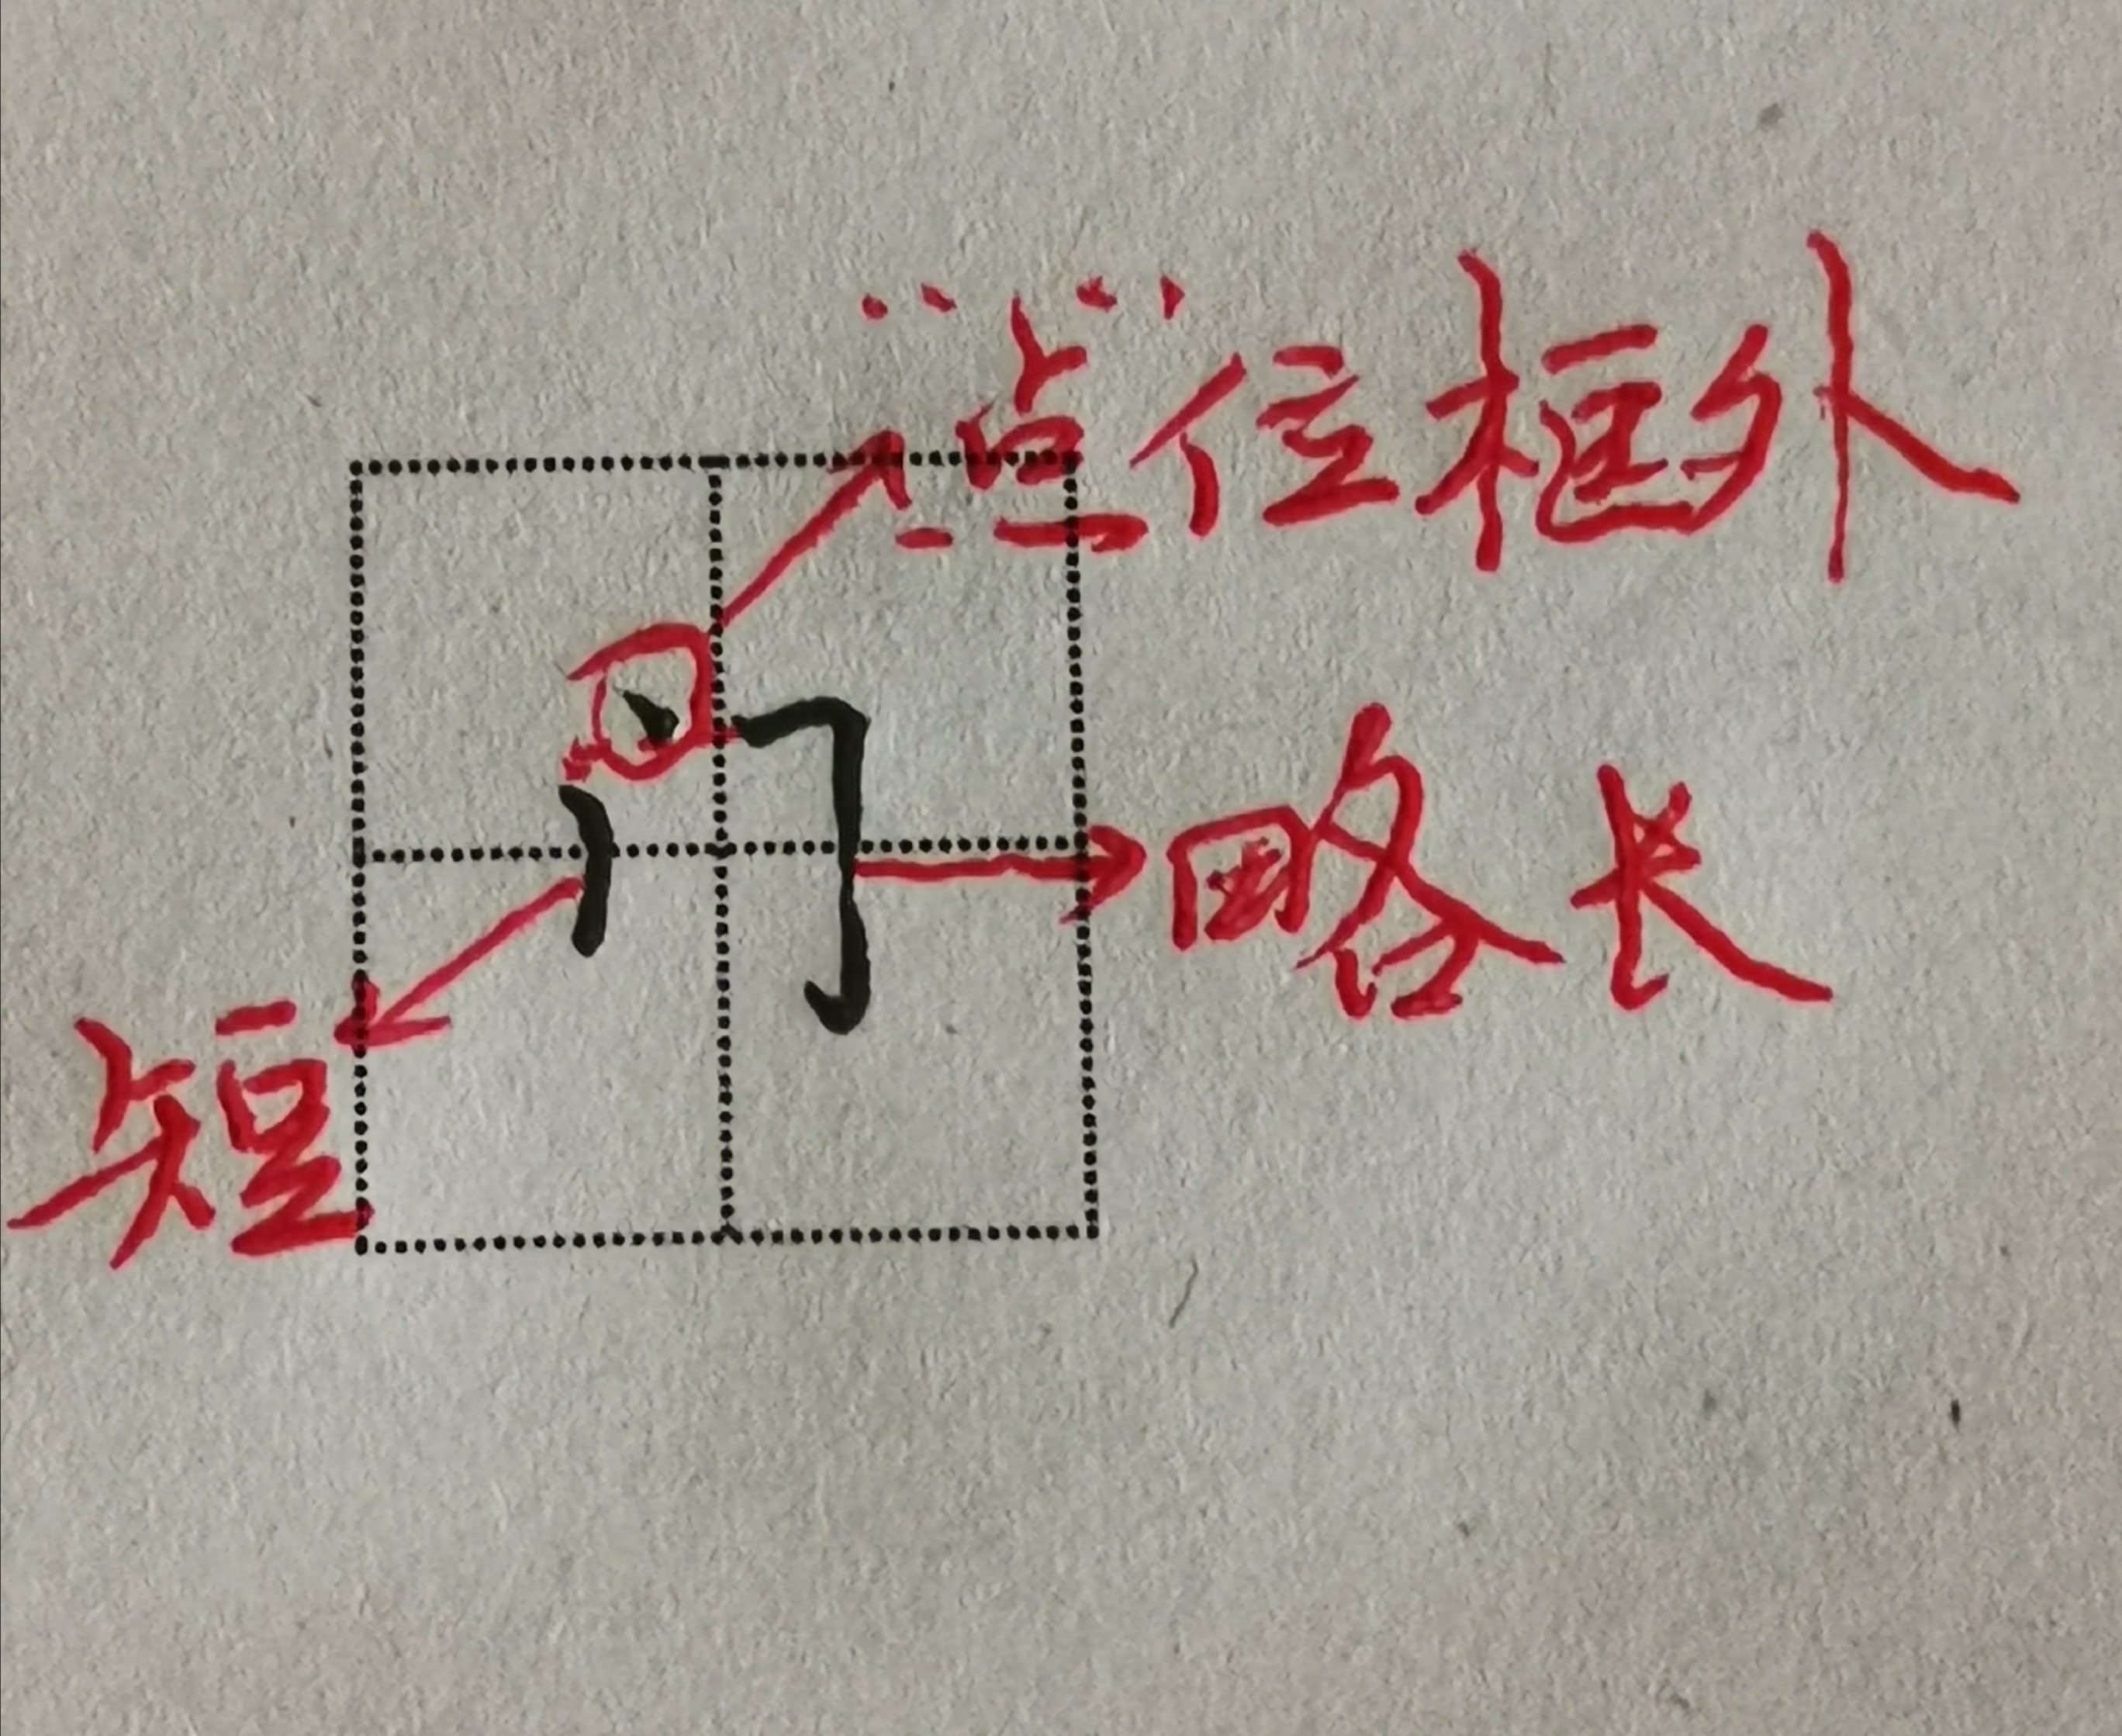 “点”位框外
门
略长
短